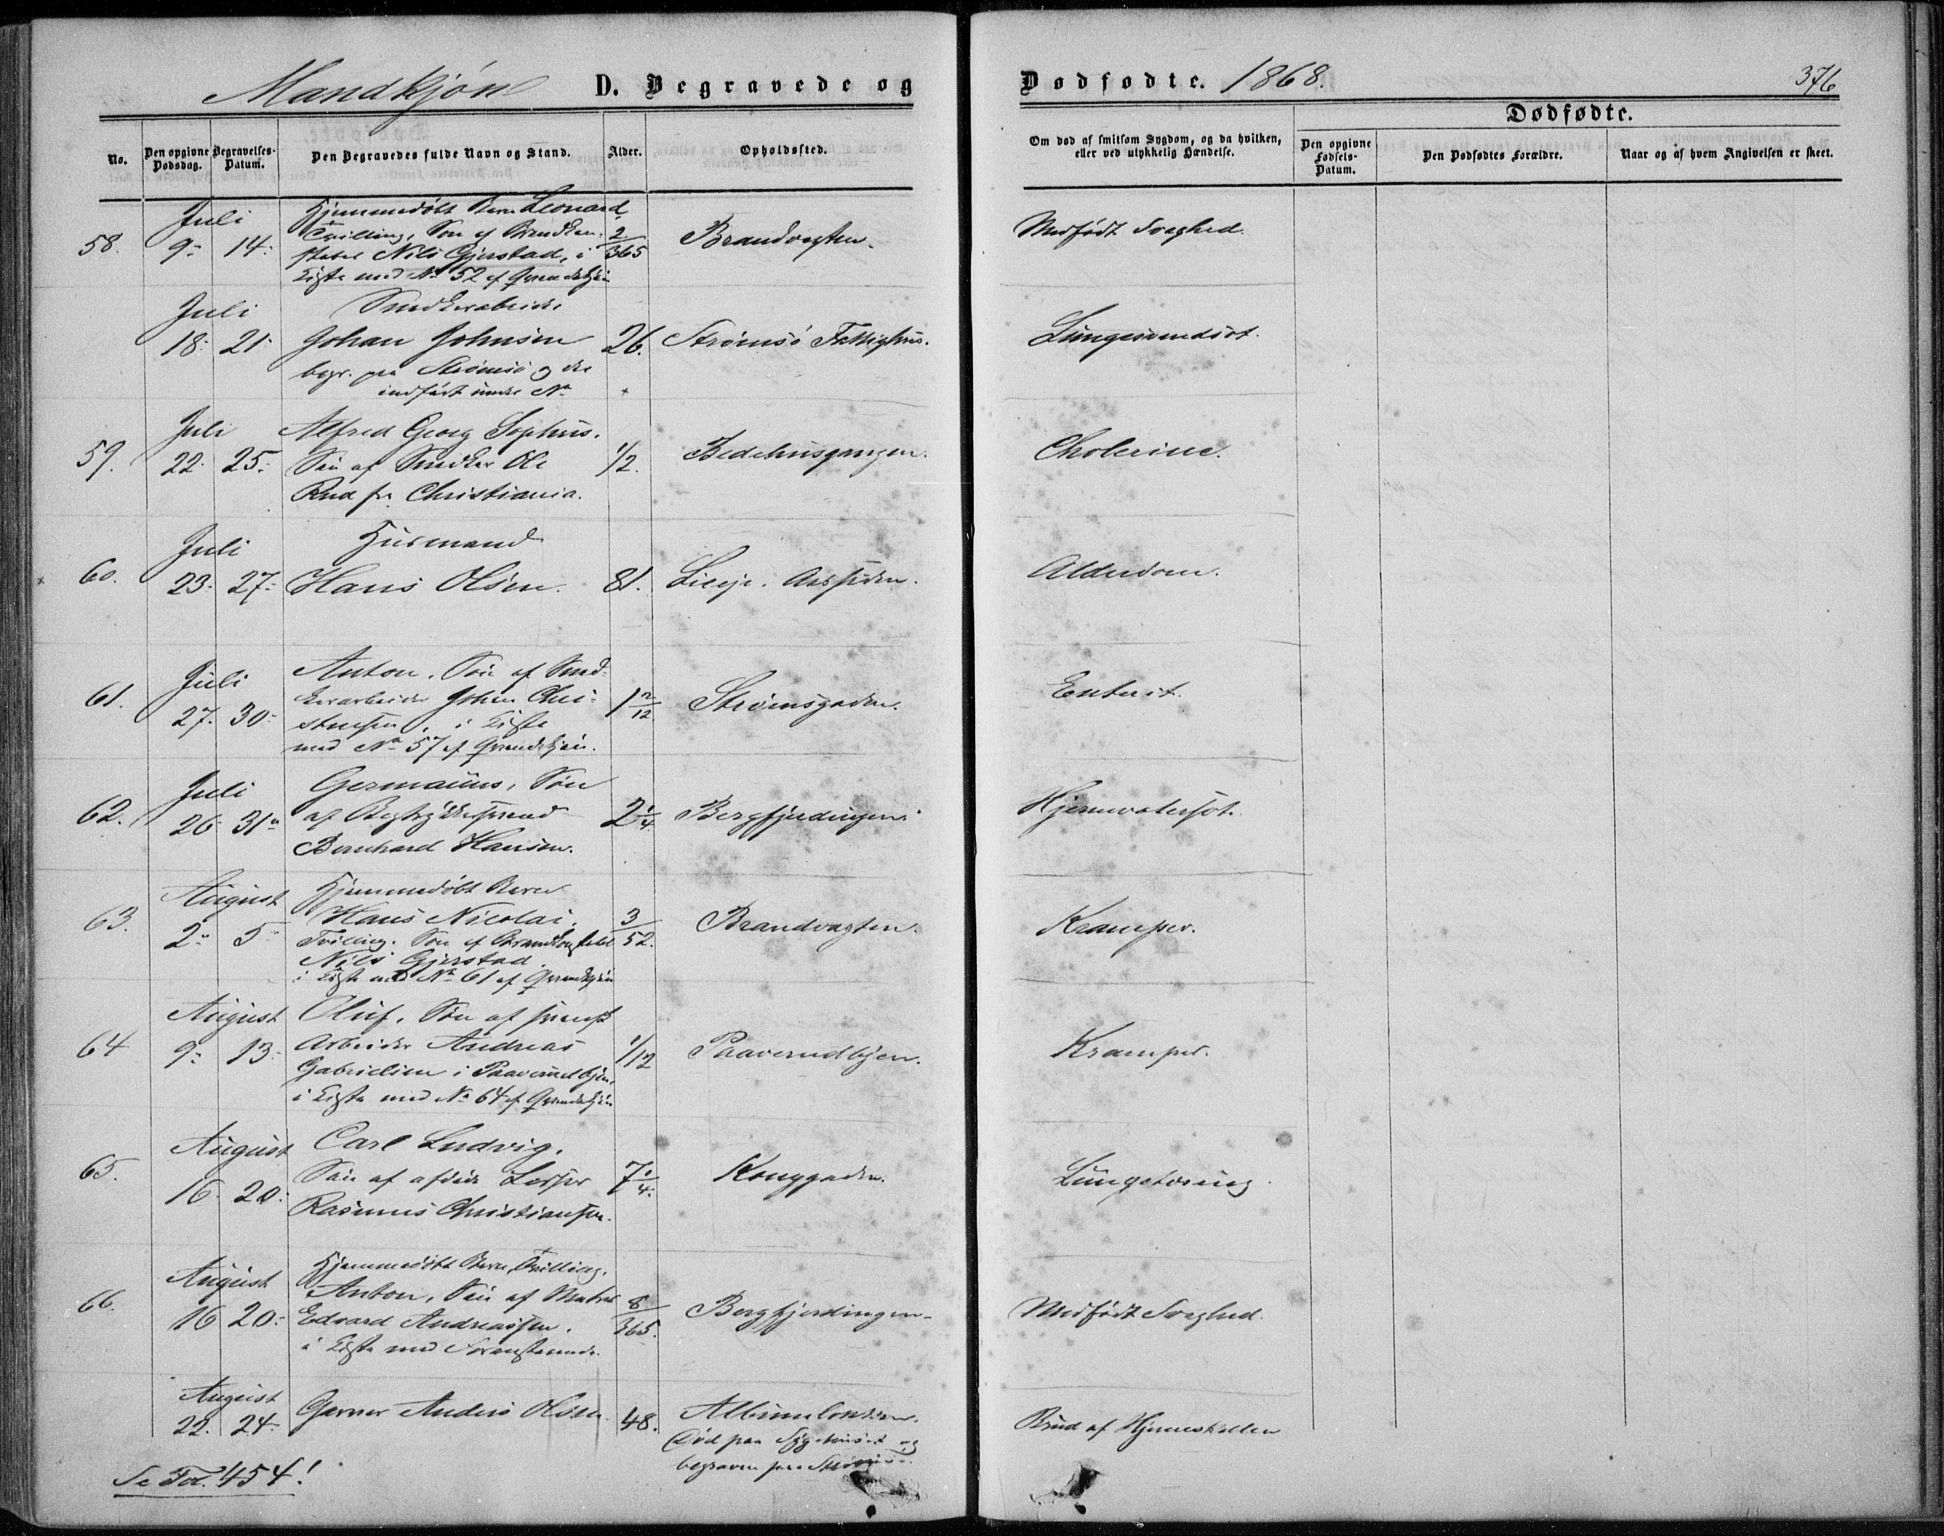 Mandkjøn D. Begravede og
Dødfødte. 1868.
376
No.
Den opgivne Dødsdag.
Begravelses-Datum.
Den Begravedes fulde Navn og Stand.
Alder.
Opholdssted.
Om død af smitsom Sygdom, og da hvilken, eller ved ulykkelig Hændelse.
Dødfødte.
Den opgivne Fødsels-Datum.
Den Dødfødtes Forældre.
Naar og af hvem Angivelsen er skeet.
58. Juli 9. 14.
Hjemmedøbt Barn Leonard,
Tvilling, Søn af Brandkon-
stabel Nils Gjerstad, i
Kiste med No 52 af Qvindekjøn
2/365
Brandvagten.
Medfødt Svaghed.
Juli 18. 21.
Snedkerarbeider
Johan Johnsen
begr. paa Strømsø og der
indført under No
26.
Strømsø Fattighus.
Lungesvindsot.
59. Juli 22. 25.
Alfred Georg Sophus.
Søn af Snedker Ole
Rud fra Christiania.
1/2.
Bedehusgangen.
Cholerine.
60. Juli 23. 27.
Husmand
Hans Olsen.
81.
Lieeje. Aassiden.
Alderdom.
61. Juli 27. 30.
Anton. Søn af Sned-
kerarbeider Johan Chri-
stensen, i Kiste
med No 57 af Qvindekjøn.
1 2/12
Strømsgaden.
Enterit.
62. Juli 26. 31.
Germanus, Søn
af Bogtrykkersvend
Bernhard Hansen.
2 1/4
Bergfjerdingen.
Hjernevatersot.
63. August 2. 5.
Hjemmedøbt Barn
Hans Nicolai,
Tvilling. Søn af Brandkonstabel
Nils Gjerstad
i Kiste med No 61 af Qvindekjøn
3/52.
Brandvagten.
Kramper.
64 August 9. 13.
Oluf. Søn af svensk
Arbeider Andreas
Gabrielsen i Paaverudbyen,
i Kiste med No 64 af Qvindekjøn
1/12
Paaverudbyen.
Kramper.
65. August 16. 20.
Carl Ludvig.
Søn af afdøde Losser
Rasmus Christiansen.
7 1/4.
Konggaden.
Lungetæring
66. August 16 20.
Hjemmedøbt Barn, Tvilling.
Anton, Søn af Matros
Edvard Andreassen.
i Kiste med Sørenstunnde.
8/365.
Bergfjerdingen.
Medfødt Svaghed.
August 22. 24.
Garver Anders Olsen
48.
Albumløkken.
Død paa Sygehuset og
begraven paa Strømsø.
Brud af Hjerneskallen
Se Fol. 454!